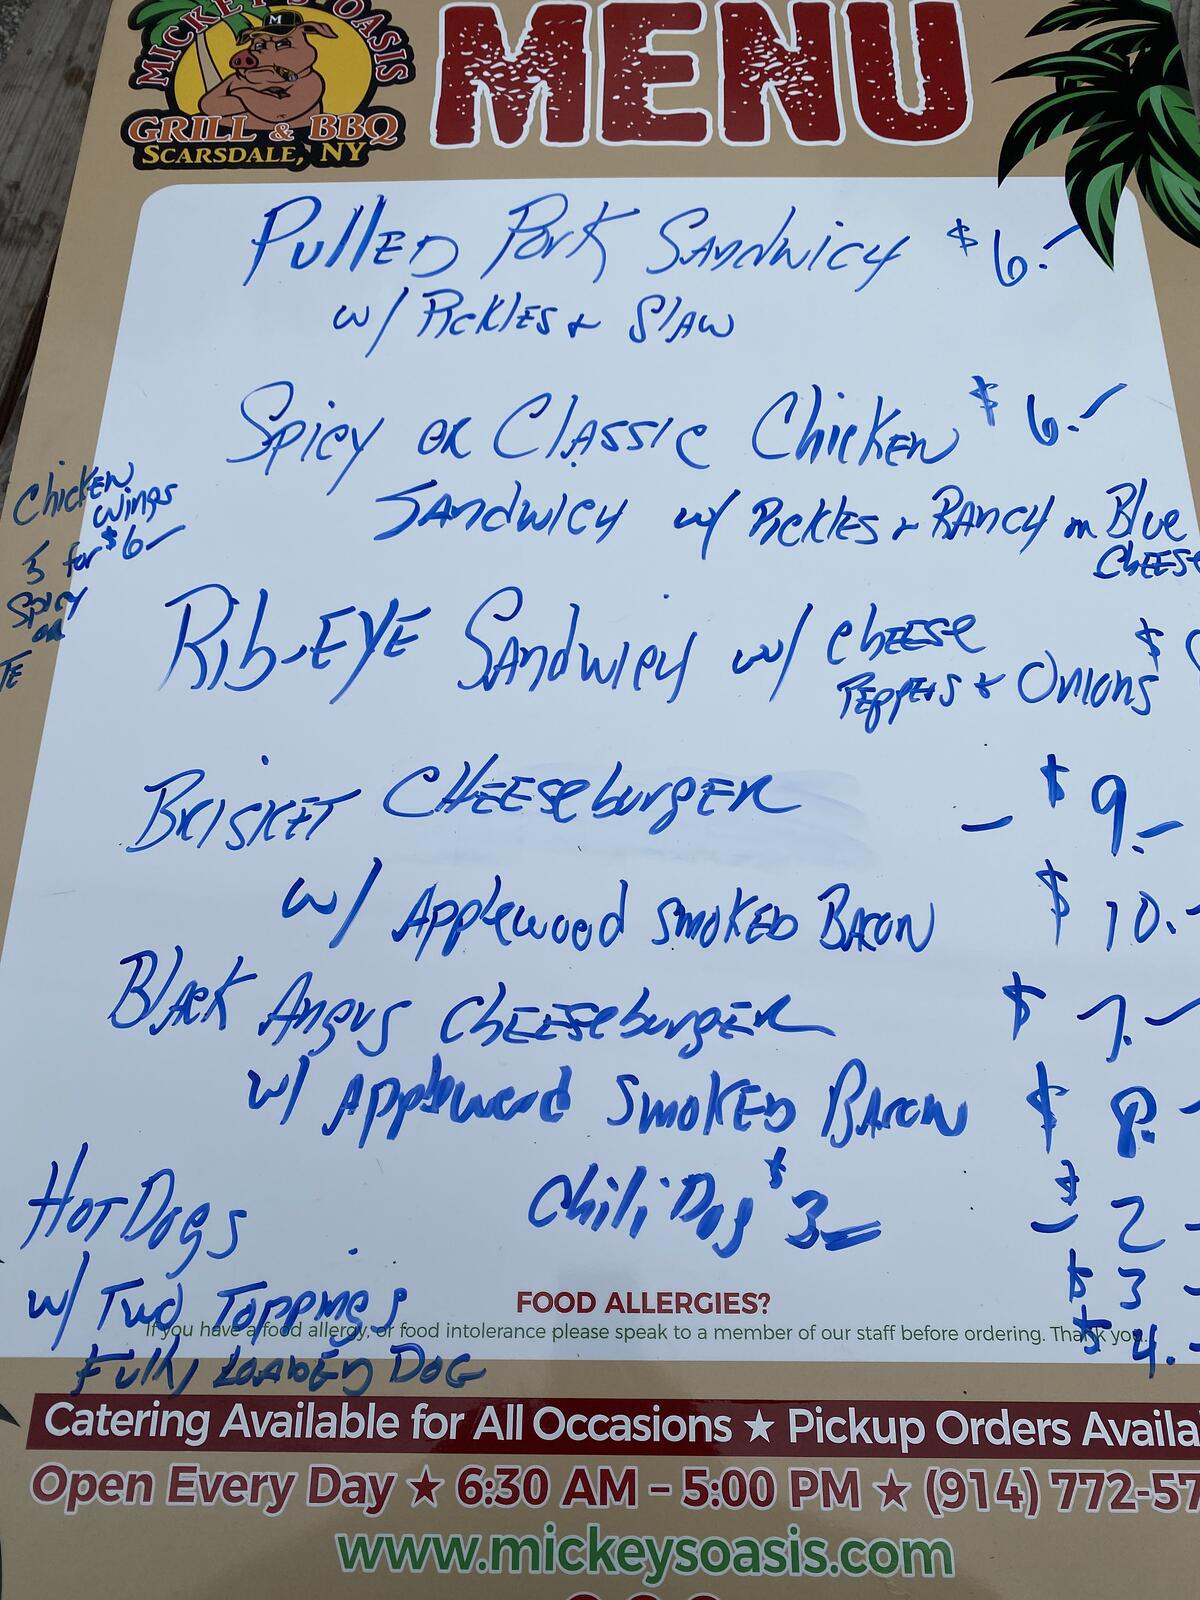 MICKEY'S OASIS
M
GRILL & BBQ
SCARSDALE, NY
MENU
PullED Pork SANdwicH $6.-
w/ PickleS & SlAW
Spicy or ClASSic ChickeN $6.-
SANdwicH w/ PickleS & RANcH or Blue
CheESE
ChickEN
Wings
5 for $6-
Spicy
or
TE
Rib-EYE SANdwicH w/ cheESE
PEppers & Onions $
BRISKET CHEESEburgER - $9.-
w/ Applewood SmoKED BACON $10.-
BlAcK Angus CheESEburgER $7.-
w/ Applewood SmoKED BACON $8.-
HoT Dogs - $2-
Chili Dog $3-
w/ Two Toppings $3-
Fully LOADED DOG $4.-
FOOD ALLERGIES?
If you have a food allergy, or food intolerance please speak to a member of our staff before ordering. Thank you.
Catering Available for All Occasions ★ Pickup Orders Availa
Open Every Day ★ 6:30 AM – 5:00 PM ★ (914) 772-57
www.mickeysoasis.com